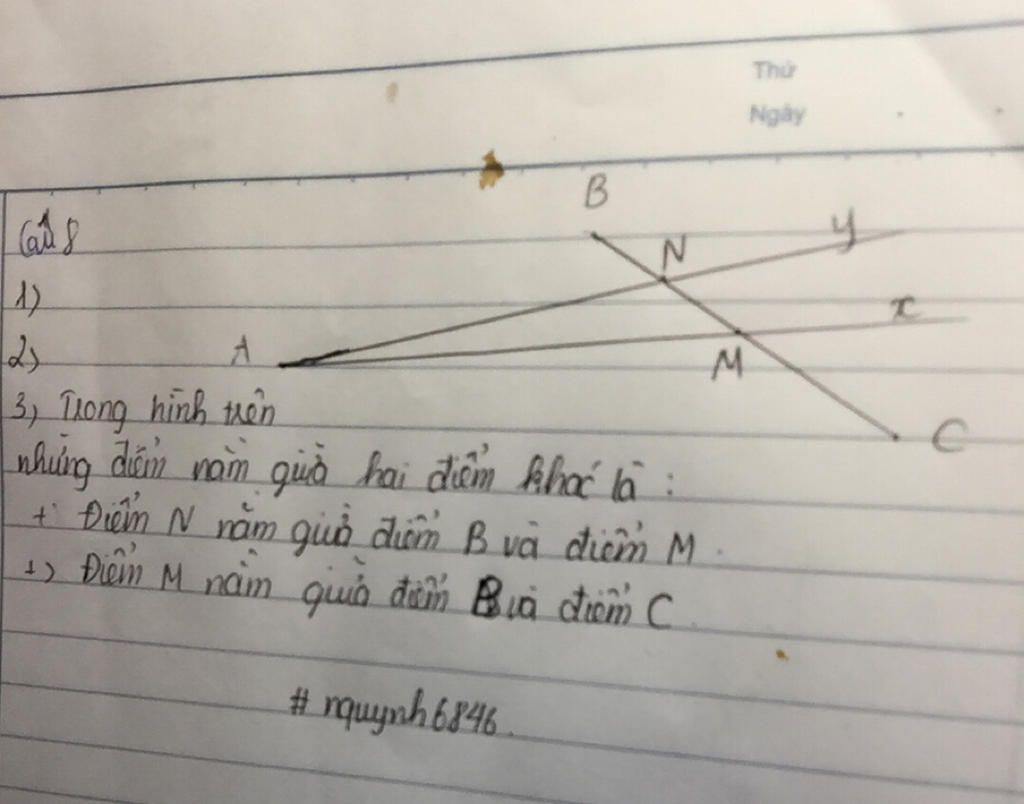 Thứ
Ngày
B
Câu 8
y
N
1)
x
2)
A
M
3) Trong hình trên
C
những điểm nằm giữa hai điểm khác là :
+ Điểm N nằm giữa điểm B và điểm M .
+) Điểm M nằm giữa điểm B và điểm C .
# nquynh6846.